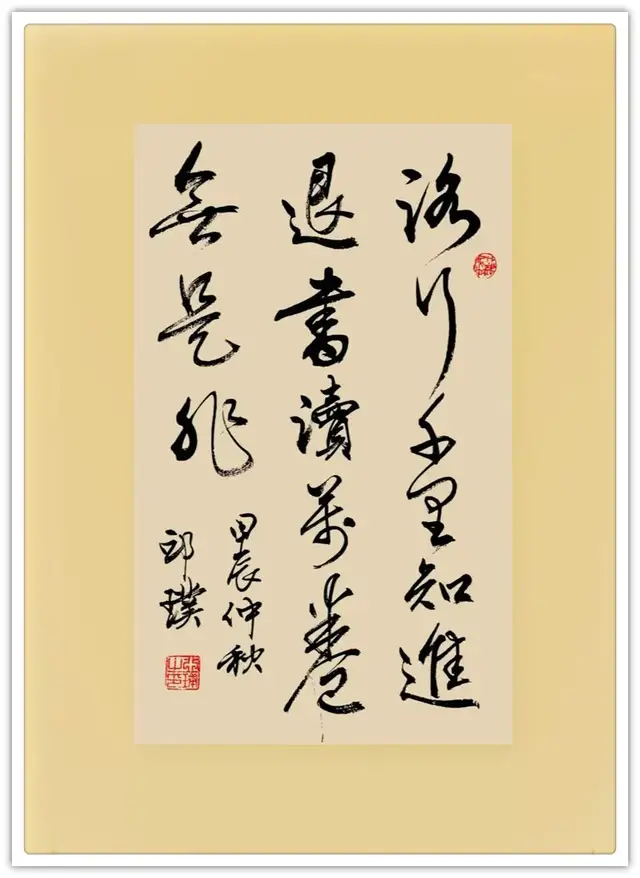 路行千里知進
退書讀萬卷
無是非
甲辰仲秋
邱璞